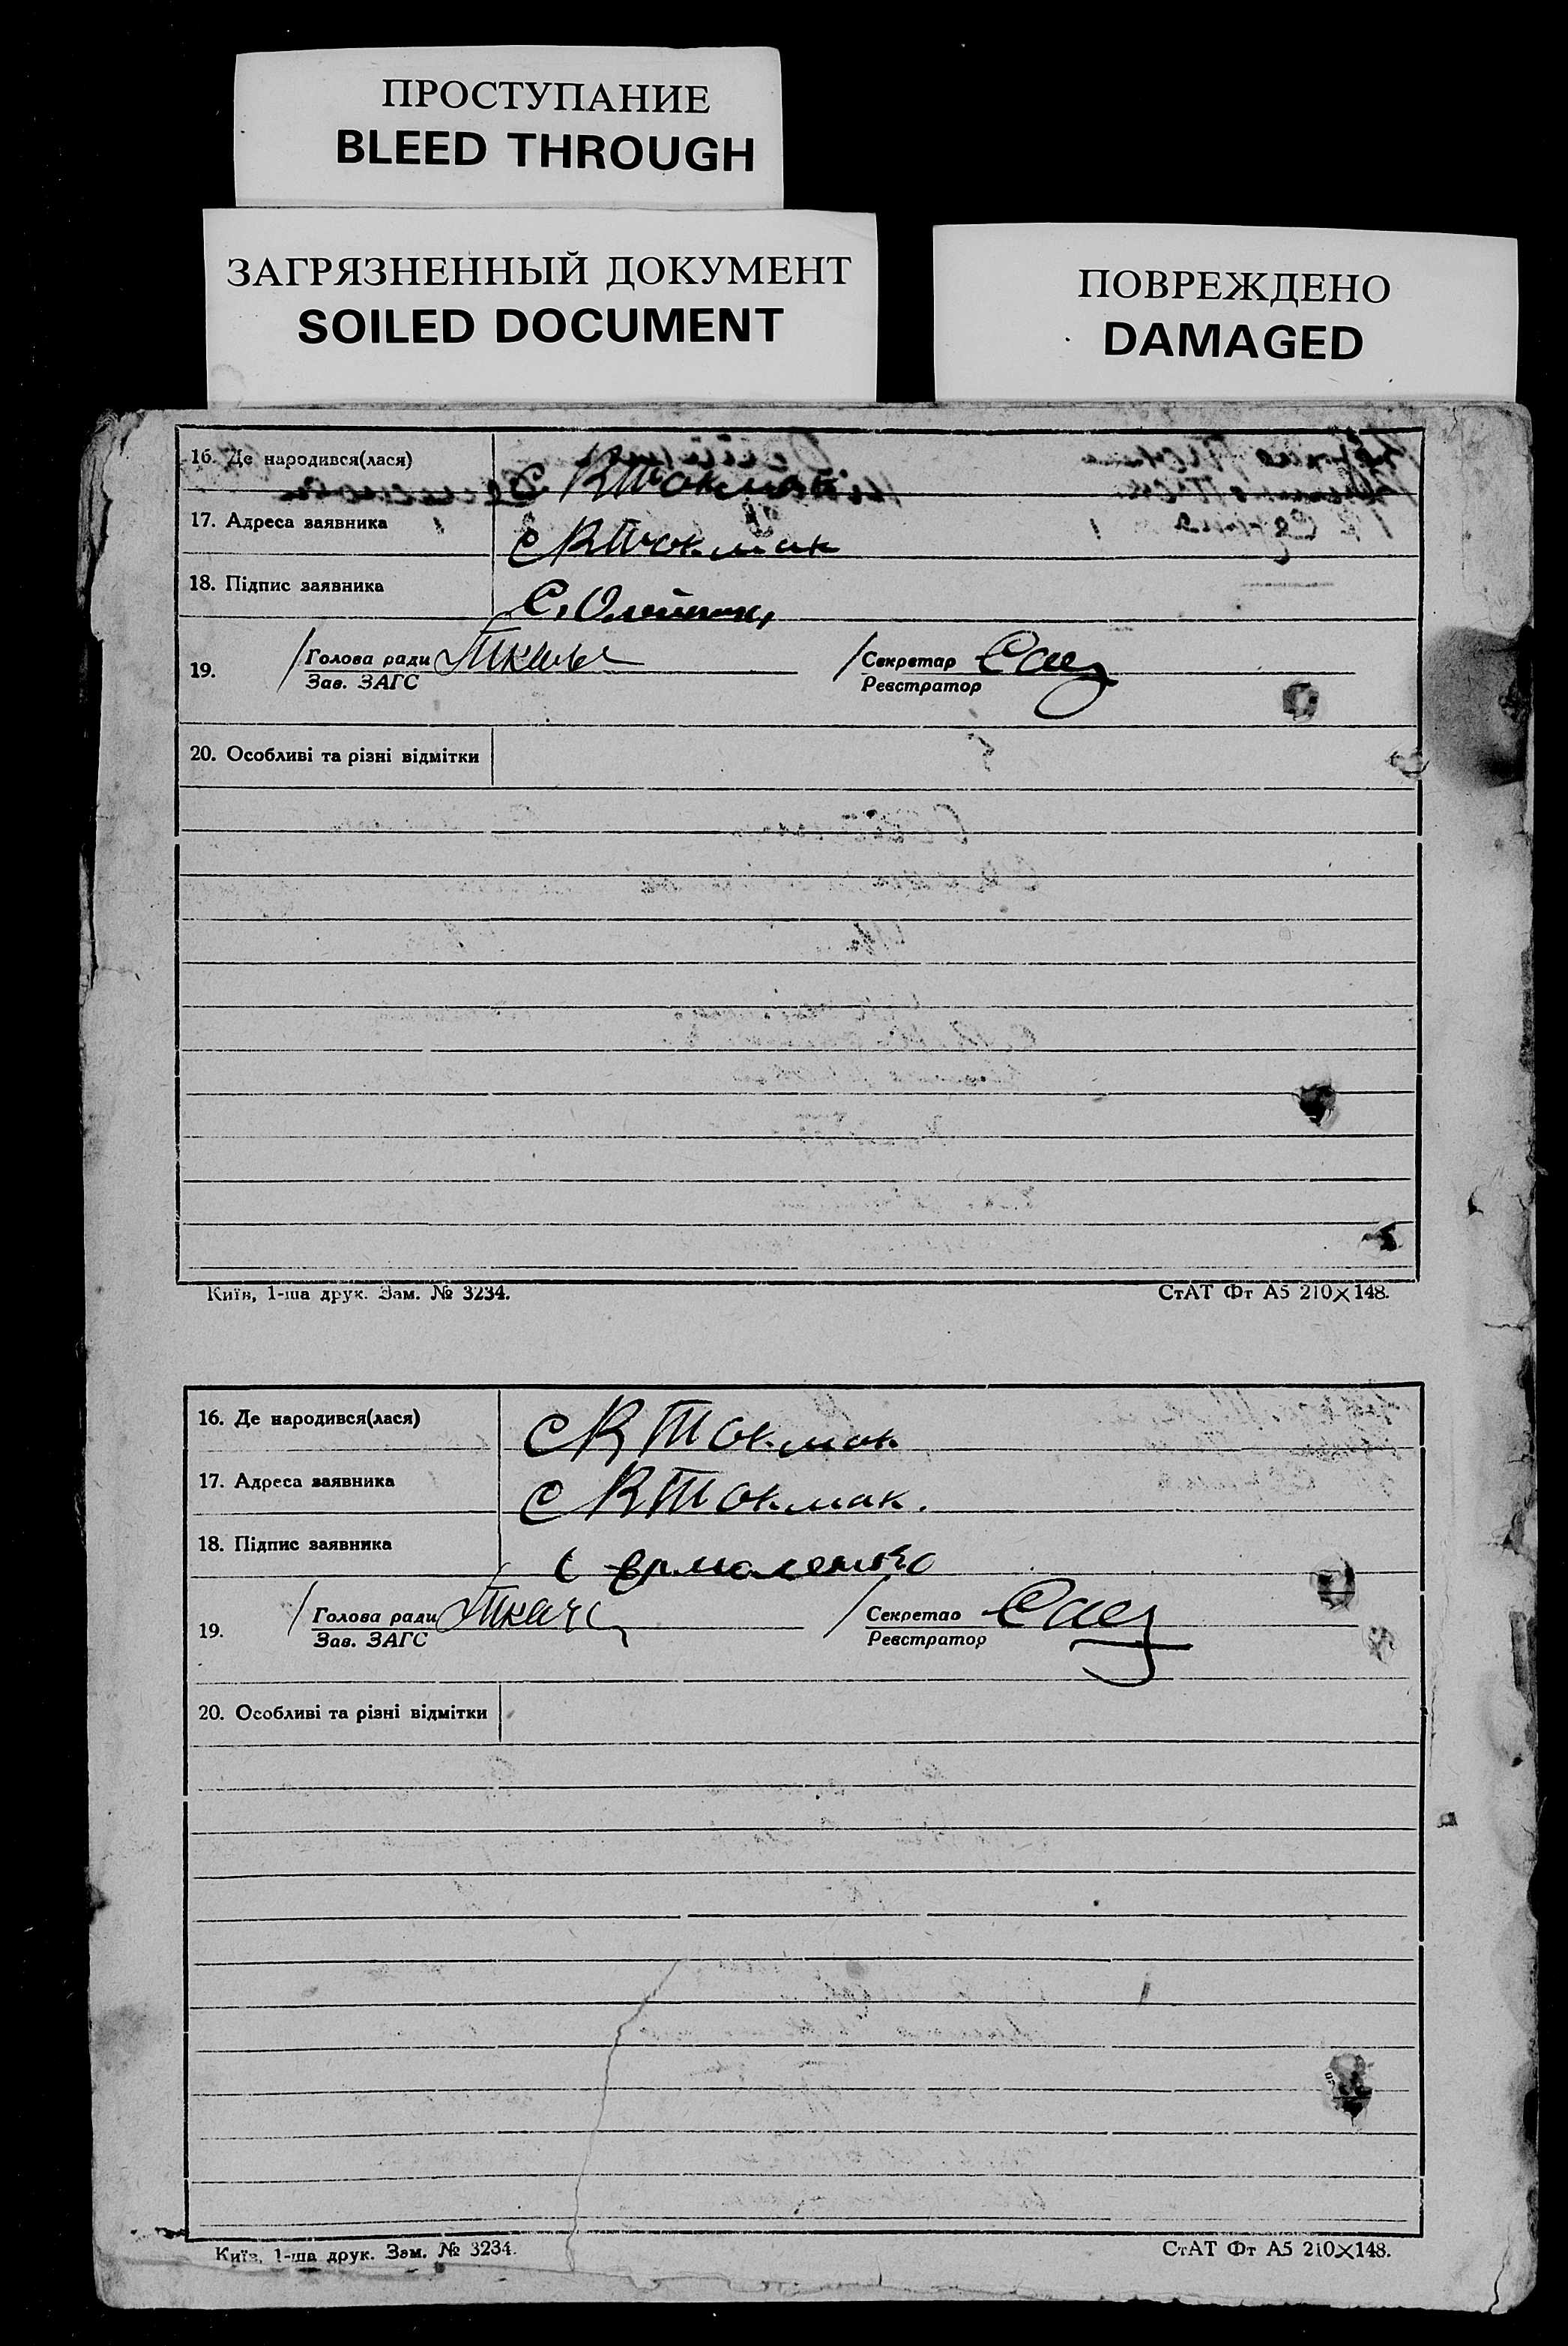 ПРОСТУПАНИЕ
BLEED THROUGH
ЗАГРЯЗНЕННЫЙ ДОКУМЕНТ
SOILED DOCUMENT
ПОВРЕЖДЕНО
DAMAGED
16. Де народився(лася) С К Токмак
17. Адреса заявника с К Токмак
18. Підпис заявника С. Олейник,
19. / Голова ради Ткач / Секретар
Зав. ЗАГС Реєстратор
20. Особливі та різні відмітки
Київ, 1-ша друк. Зам. № 3234. СтАТ Фт А5 210×148.
16. Де народився(лася) С К Токмак
17. Адреса заявника С К Токмак.
18. Підпис заявника Єрмоленко
19. / Голова ради Ткач / Секретар
Зав. ЗАГС Реєстратор
20. Особливі та різні відмітки
Київ, 1-ша друк. Зам. № 3234. СтАТ Фт А5 210×148.